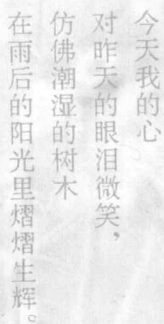 今天我的心
对昨天的眼泪微笑，
仿佛潮湿的树木
在雨后的阳光里熠熠生辉。